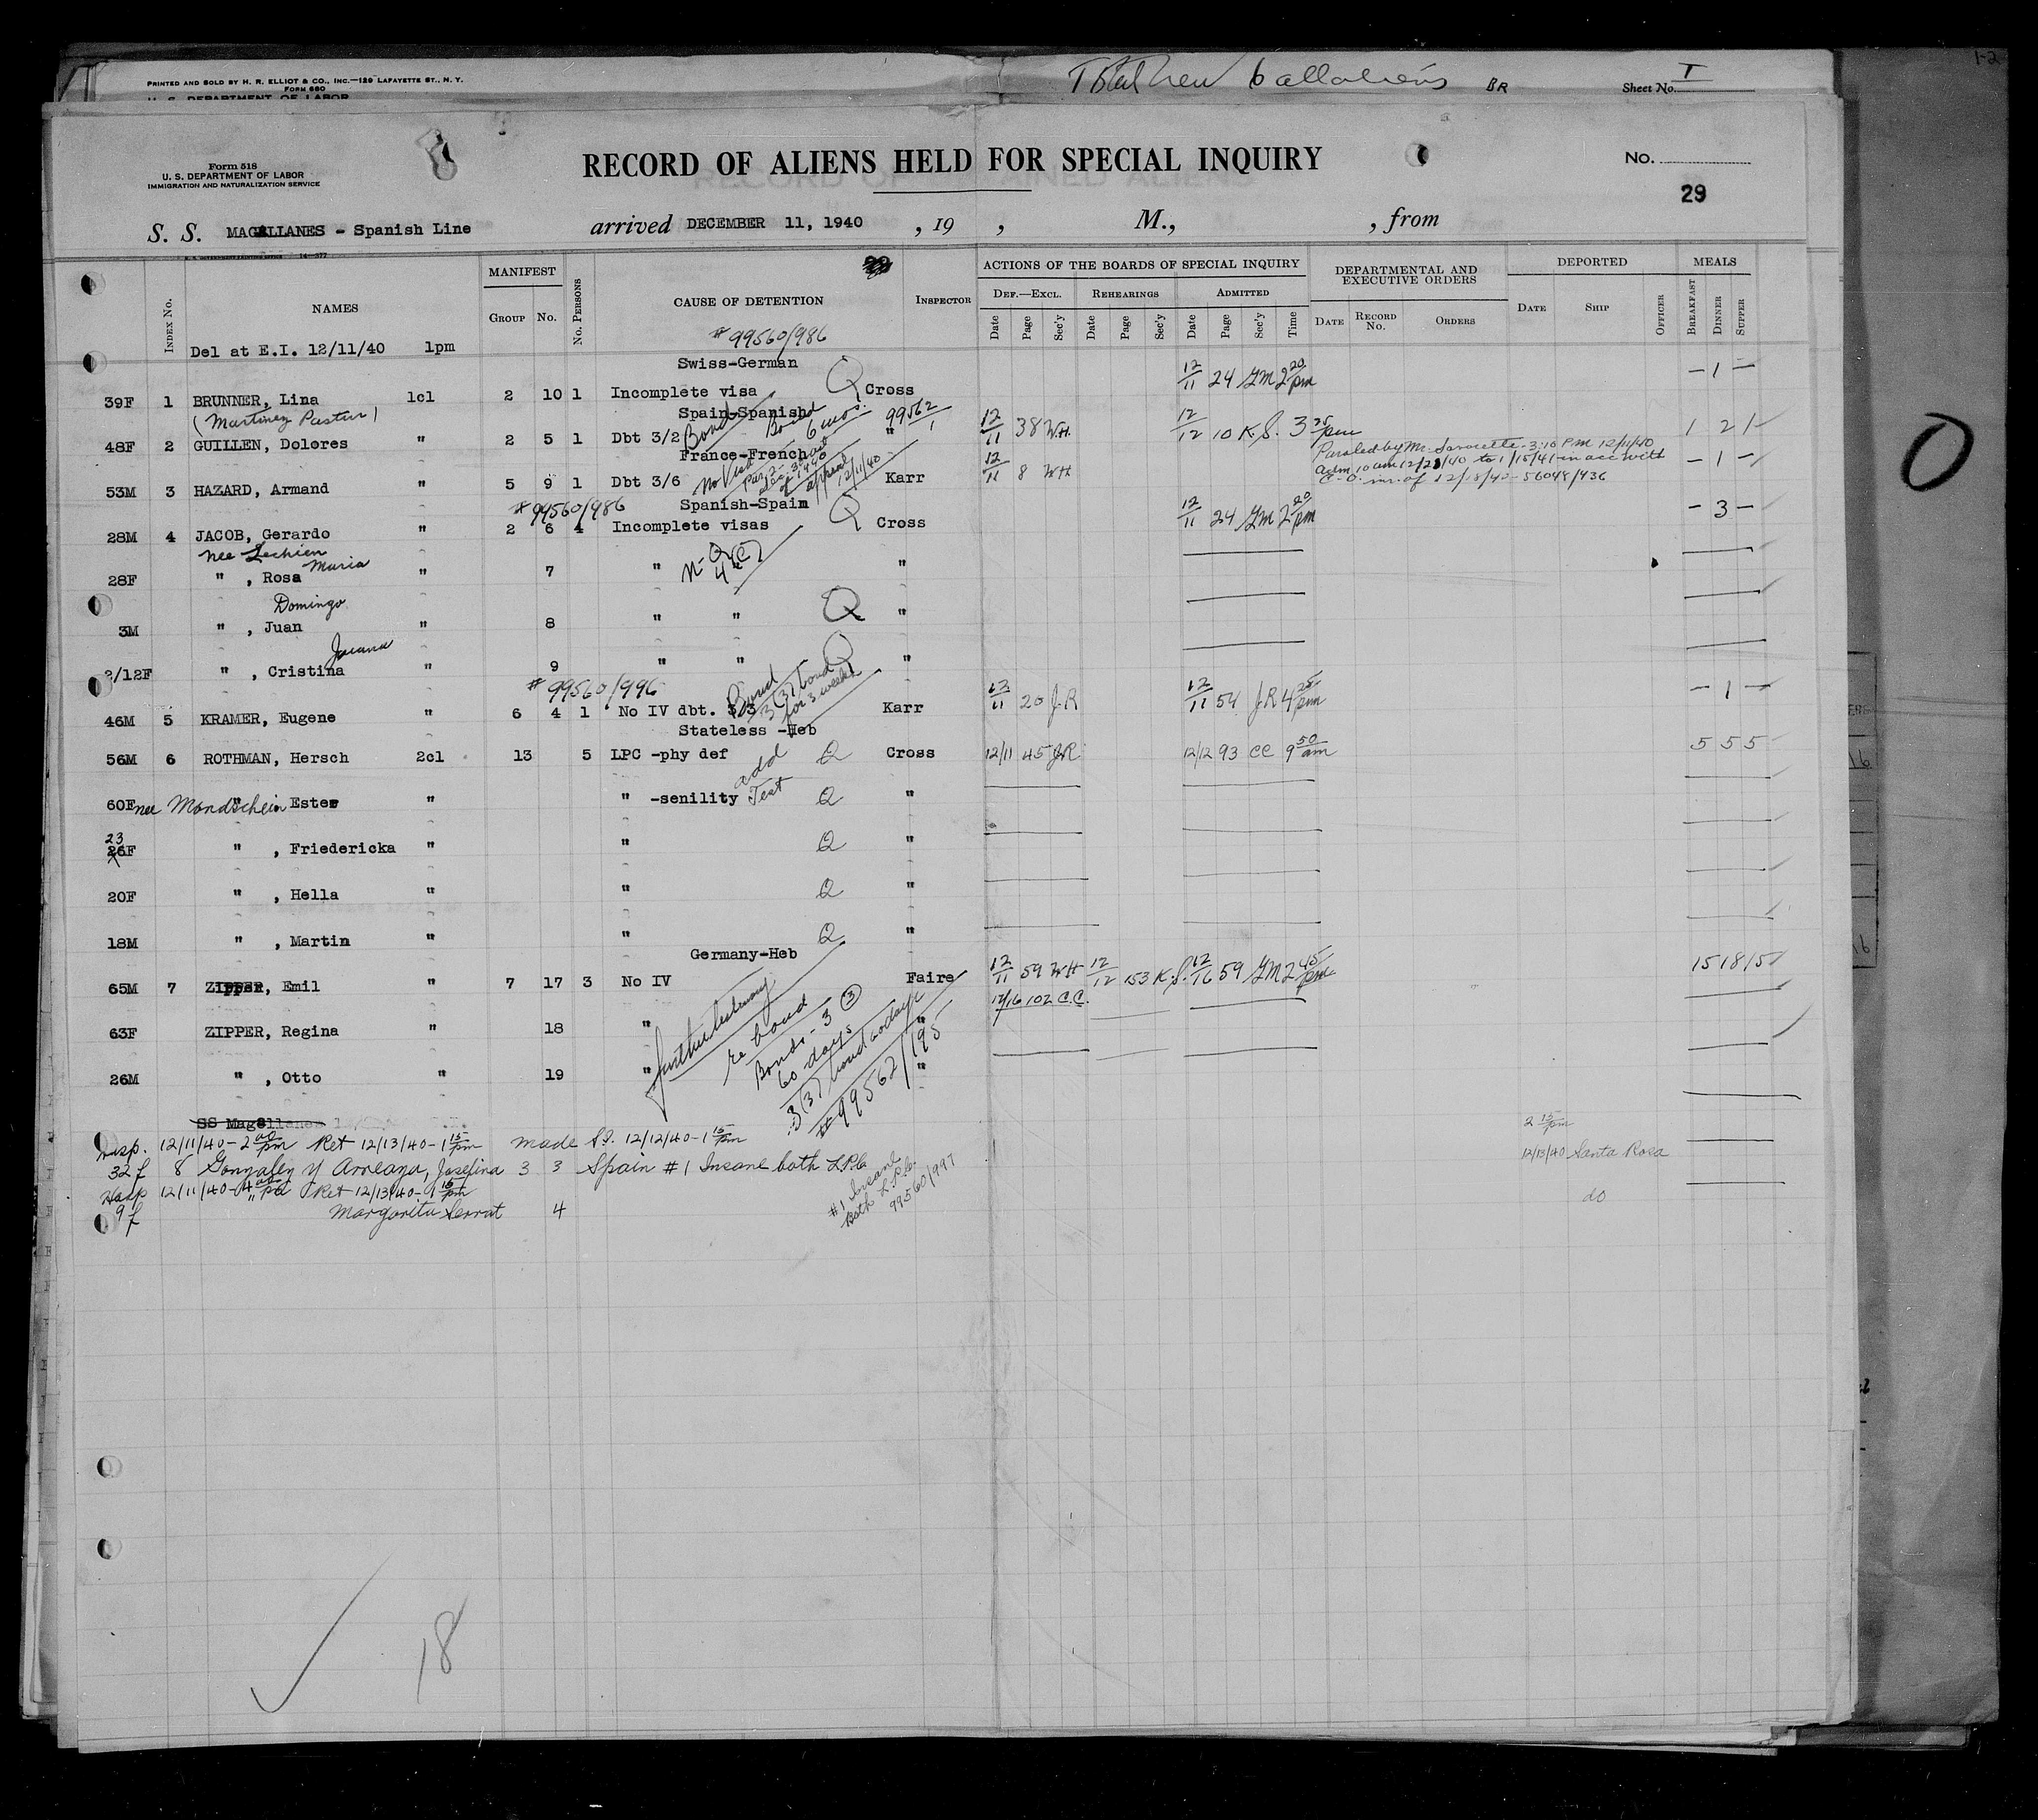 PRINTED AND SOLD BY H. R. ELLIOT & CO., INC.—129 LAFAYETTE ST., N. Y.
FORM 680
U. S. DEPARTMENT OF LABOR
Total new BR
Sheet No. I
1-2
Form 518
U. S. DEPARTMENT OF LABOR
IMMIGRATION AND NATURALIZATION SERVICE
RECORD OF ALIENS HELD FOR SPECIAL INQUIRY
No.
29
S. S. MAGALLANES - Spanish Line arrived DECEMBER 11, 1940 , 19 , M., , from
INDEX No. NAMES MANIFEST GROUP No. No. PERSONS CAUSE OF DETENTION INSPECTOR
ACTIONS OF THE BOARDS OF SPECIAL INQUIRY
DEF.—EXCL. REHEARINGS ADMITTED
Date Page Sec'y Date Page Sec'y Date Page Sec'y Time
DEPARTMENTAL AND EXECUTIVE ORDERS
DATE RECORD No. ORDERS
DEPORTED
DATE SHIP OFFICER
MEALS
BREAKFAST DINNER SUPPER
# 99560/986
Del at E.I. 12/11/40 1pm
Swiss-German
39F 1 BRUNNER, Lina 1cl 2 10 1 Incomplete visa Q Cross 12/11 24 GM 2 20 pm - 1 -
(Martinez Pastur) Spain-Spanish Bond 6 mos. 99562/1
48F 2 GUILLEN, Dolores " 2 5 1 Dbt 3/2 Bond " 12/11 38 W.H. 12/12 10 K.S. 3 35 pm 1 2 1
France-French
Paroled by Mr. 3:10 P.M 12/11/40
53M 3 HAZARD, Armand " 5 9 1 Dbt 3/6 No Visa appeal 12/11/40 Karr 12/11 8 WH - 1 -
Adm 10 am 12/21/40 to 1/15/41 in acc with
C.O. of 12/18/40 - 56048/436
# 99560/986 Spanish-Spain
28M 4 JACOB, Gerardo " 2 6 4 Incomplete visas Q Cross 12/11 24 GM 2 20 pm - 3 -
nee Lechien
28F " , Rosa Maria " 7 " "
Domingo
3M " , Juan " 8 " " Q "
Juana
2/12F " , Cristina " 9 " " Q "
# 99560/996 Bond 3 (3) bond for 3 weeks
46M 5 KRAMER, Eugene " 6 4 1 No IV dbt. 3/3 Karr 12/11 20 J.R 12/11 54 J.R 4 25 pm - 1 -
Stateless -Heb
56M 6 ROTHMAN, Hersch 2cl 13 5 LPC -phy def Q Cross 12/11 45 JR 12/12 93 CC 9 50 am 5 5 5
add Test
60F nee Mondschein " Ester " " -senility Q "
23
26F " , Friedericka " " Q "
20F " , Hella " " Q "
18M " , Martin " " Q "
Germany-Heb
65M 7 ZIPPER, Emil " 7 17 3 No IV Faire 12/11 59 WH 12/12 153 K.S. 12/16 59 GM 2 45 pm 15 18 15
12/16 102 C.C.
63F ZIPPER, Regina " 18 " "
26M " , Otto " 19 " "
further testimony
re bond
Bonds - 3 (3)
60 days
3 (3) bond 60 days
# 99562/195
SS Magallanes
Hosp. 12/11/40 - 2 00 pm Ret 12/13/40 - 1 15 pm made S.I. 12/12/40 - 1 15 pm 2 15 pm
32 f 8 Gonzalez y Arreaza, Josefina 3 3 Spain #1 Insane both LPC 12/13/40 Santa Rosa
Hosp 12/11/40 - 4 00 pm Ret 12/13/40 - 1 15 pm
9 f Margarita Serrat 4 do
#1 Insane
Both L.P.C.
99560/997
18
0